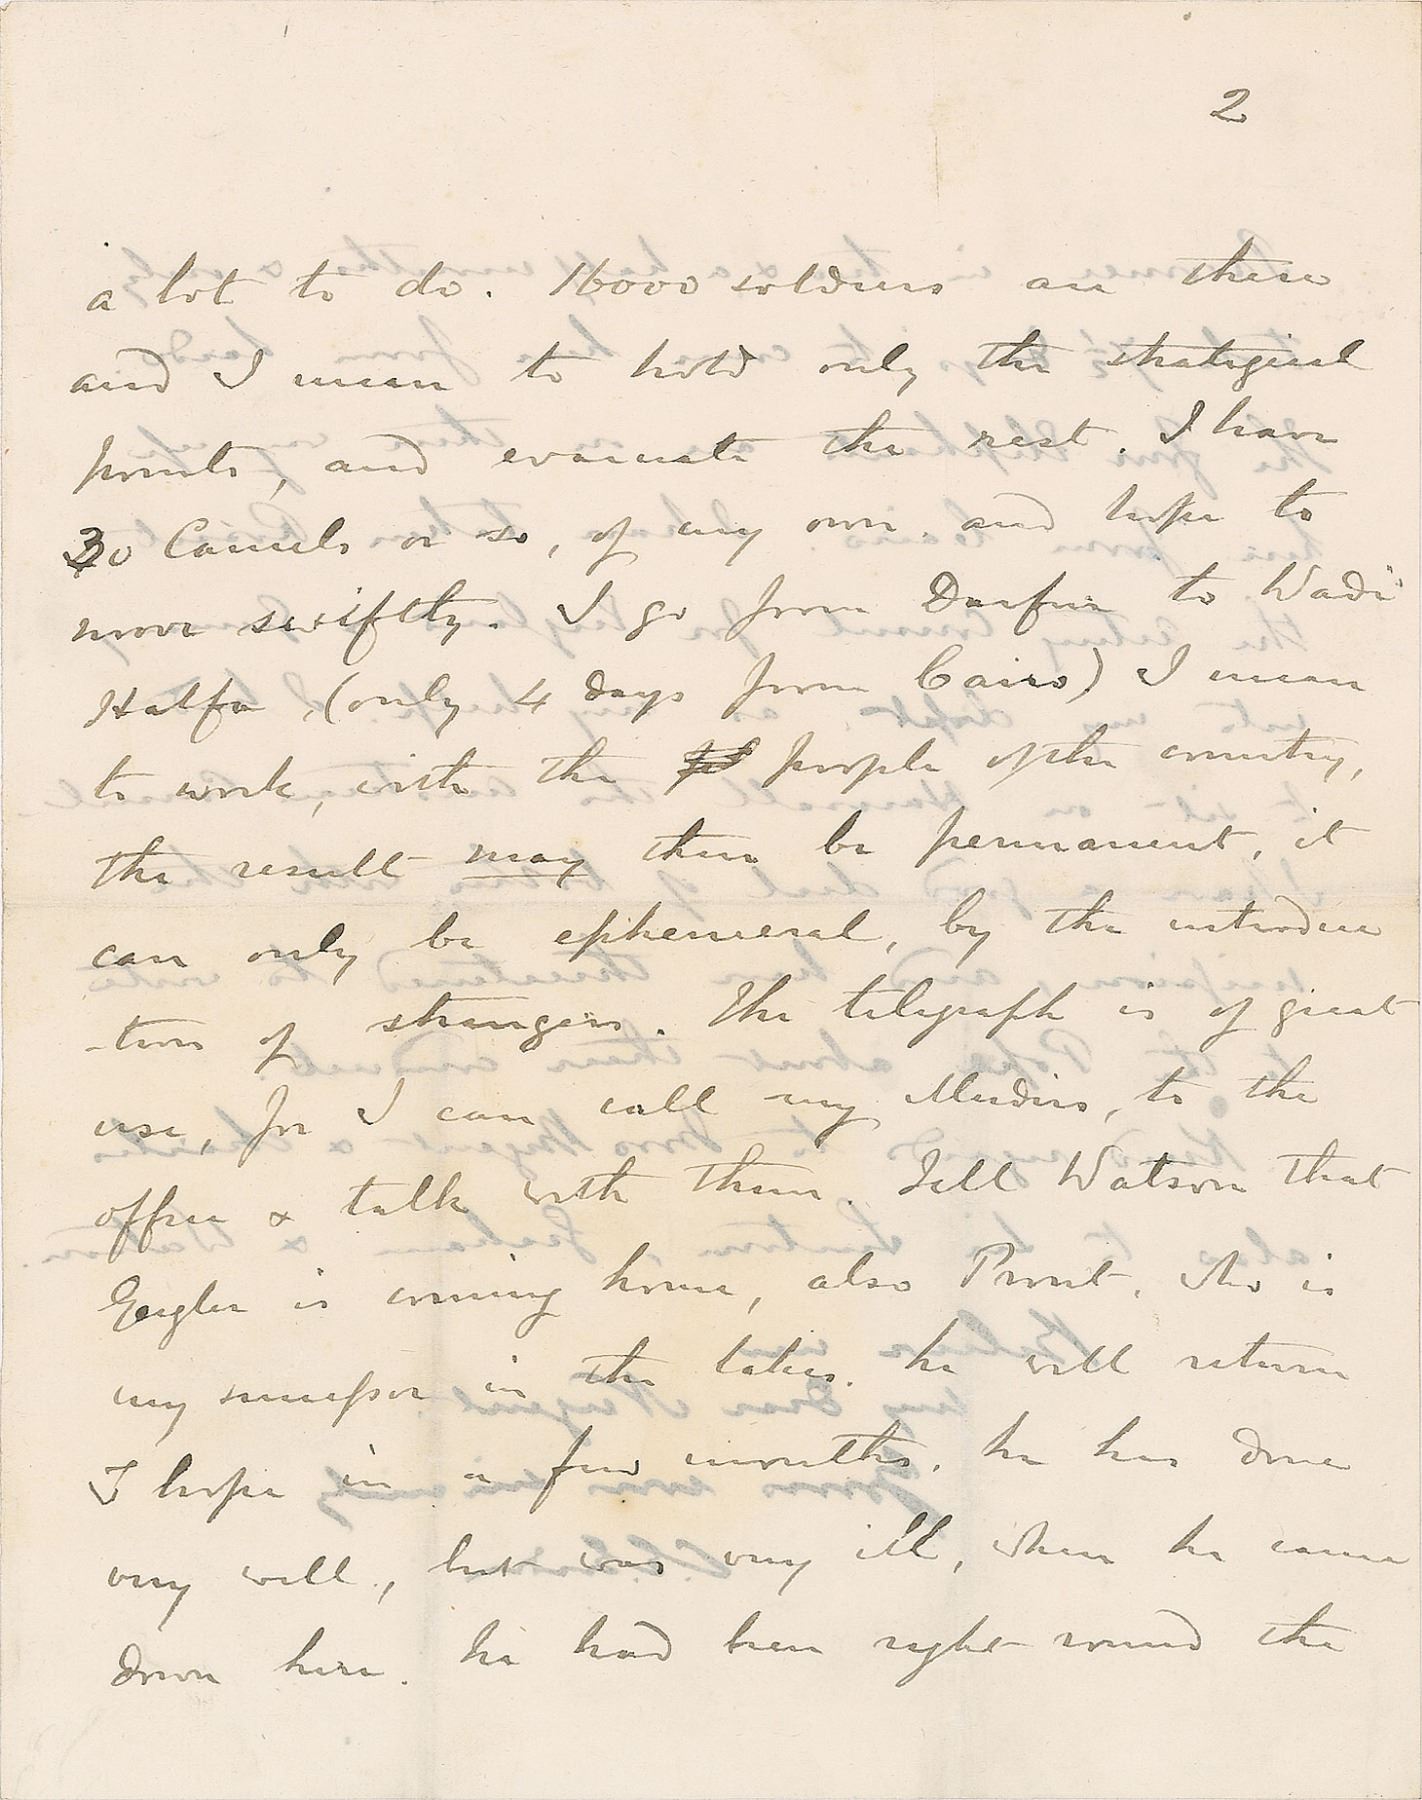 2
a lot to do. 16000 soldiers are there
and I mean to hold only the strategical
points, and evacuate the rest. I have
30 Camels or so, of my own and hope to
move swiftly. I go from Darfur to Wadi
Halfa, (only 4 days from Cairo) I mean
to work, with the people of the country,
the result may then be permanent, it
can only be ephemeral, by the introduc
-tion of strangers. The telegraph is of great
use, for I can call my Mudirs, to the
office & talk with them. Tell Watson that
Geigler is coming home, also Prout, who is
my successor in the lakes. he will return
I hope in a few months. he has done
very well, but was very ill, when he came
down here. he had been right round the